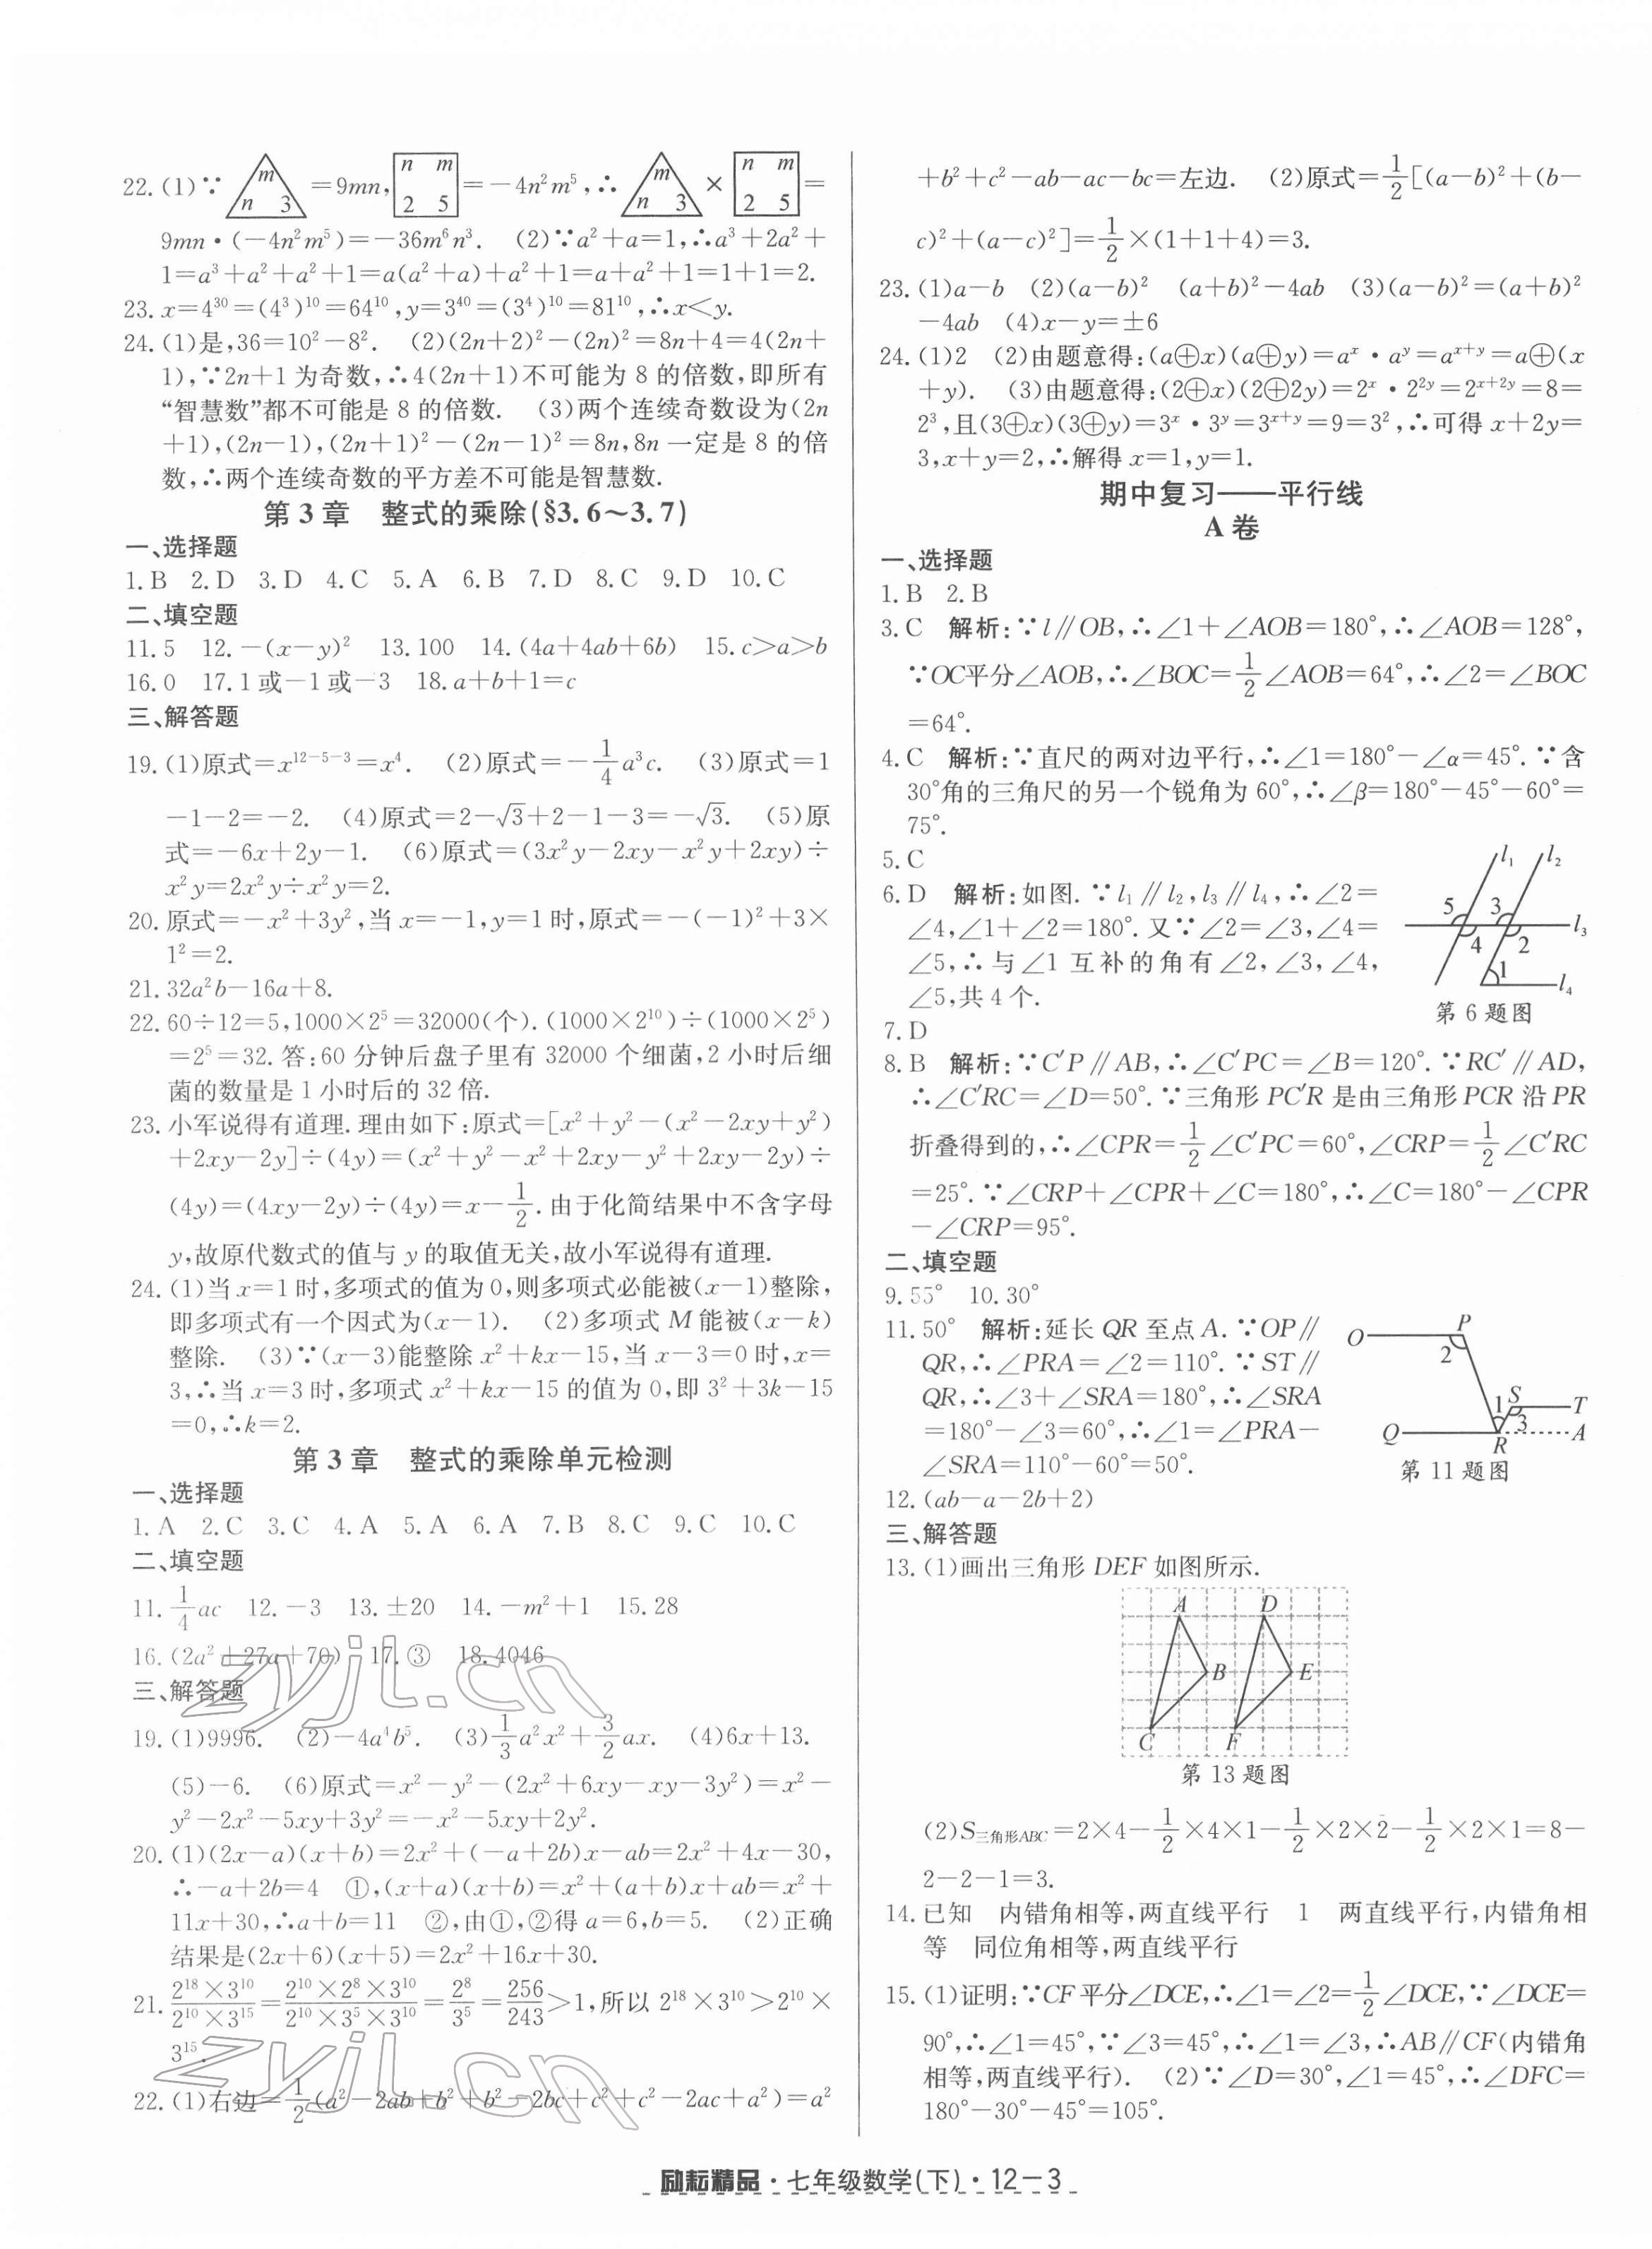 22.(1)∵ m n 3 =9mn, n m 2 5 =-4n²m⁵,∴ m n 3 × n m 2 5 =
9mn·(-4n²m⁵)=-36m⁶n³. (2)∵a²+a=1,∴a³+2a²+
1=a³+a²+a²+1=a(a²+a)+a²+1=a+a²+1=1+1=2.
23.x=4³⁰=(4³)¹⁰=64¹⁰,y=3⁴⁰=(3⁴)¹⁰=81¹⁰,∴x<y.
24.(1)是,36=10²-8². (2)(2n+2)²-(2n)²=8n+4=4(2n+
1),∵2n+1为奇数,∴4(2n+1)不可能为8的倍数,即所有
“智慧数”都不可能是8的倍数. (3)两个连续奇数设为(2n
+1),(2n-1),(2n+1)²-(2n-1)²=8n,8n一定是8的倍
数,∴两个连续奇数的平方差不可能是智慧数.
第3章 整式的乘除(§3.6~3.7)
一、选择题
1.B 2.D 3.D 4.C 5.A 6.B 7.D 8.C 9.D 10.C
二、填空题
11.5 12.-(x-y)² 13.100 14.(4a+4ab+6b) 15.c>a>b
16.0 17.1或-1或-3 18.a+b+1=c
三、解答题
19.(1)原式=x¹²⁻⁵⁻³=x⁴. (2)原式=-1/4a³c. (3)原式=1
-1-2=-2. (4)原式=2-√3+2-1-3=-√3. (5)原
式=-6x+2y-1. (6)原式=(3x²y-2xy-x²y+2xy)÷
x²y=2x²y÷x²y=2.
20.原式=-x²+3y²,当x=-1,y=1时,原式=-(-1)²+3×
1²=2.
21.32a²b-16a+8.
22.60÷12=5,1000×2⁵=32000(个).(1000×2¹⁰)÷(1000×2⁵)
=2⁵=32.答:60分钟后盘子里有32000个细菌,2小时后细
菌的数量是1小时后的32倍.
23.小军说得有道理.理由如下:原式=[x²+y²-(x²-2xy+y²)
+2xy-2y]÷(4y)=(x²+y²-x²+2xy-y²+2xy-2y)÷
(4y)=(4xy-2y)÷(4y)=x-1/2.由于化简结果中不含字母
y,故原代数式的值与y的取值无关,故小军说得有道理.
24.(1)当x=1时,多项式的值为0,则多项式必能被(x-1)整除,
即多项式有一个因式为(x-1). (2)多项式M能被(x-k)
整除. (3)∵(x-3)能整除x²+kx-15,当x-3=0时,x=
3,∴当x=3时,多项式x²+kx-15的值为0,即3²+3k-15
=0,∴k=2.
第3章 整式的乘除单元检测
一、选择题
1.A 2.C 3.C 4.A 5.A 6.A 7.B 8.C 9.C 10.C
二、填空题
11.1/4ac 12.-3 13.±20 14.-m²+1 15.28
16.(2a²+27a+70) 17.③ 18.4046
三、解答题
19.(1)9996. (2)-4a⁴b⁵. (3)1/3a²x²+3/2ax. (4)6x+13.
(5)-6. (6)原式=x²-y²-(2x²+6xy-xy-3y²)=x²-
y²-2x²-5xy+3y²=-x²-5xy+2y².
20.(1)(2x-a)(x+b)=2x²+(-a+2b)x-ab=2x²+4x-30,
∴-a+2b=4 ①,(x+a)(x+b)=x²+(a+b)x+ab=x²+
11x+30,∴a+b=11 ②,由①,②得a=6,b=5. (2)正确
结果是(2x+6)(x+5)=2x²+16x+30.
21.(2¹⁸×3¹⁰)/(2¹⁰×3¹⁵)=(2¹⁰×2⁸×3¹⁰)/(2¹⁰×3⁵×3¹⁰)=2⁸/3⁵=256/243>1,所以2¹⁸×3¹⁰>2¹⁰×
3¹⁵.
22.(1)右边=1/2(a²-2ab+b²+b²-2bc+c²+c²-2ac+a²)=a²
+b²+c²-ab-ac-bc=左边. (2)原式=1/2[(a-b)²+(b-
c)²+(a-c)²]=1/2×(1+1+4)=3.
23.(1)a-b (2)(a-b)² (a+b)²-4ab (3)(a-b)²=(a+b)²
-4ab (4)x-y=±6
24.(1)2 (2)由题意得:(a⊕x)(a⊕y)=aˣ·aʸ=aˣ⁺ʸ=a⊕(x
+y). (3)由题意得:(2⊕x)(2⊕2y)=2ˣ·2²ʸ=2ˣ⁺²ʸ=8=
2³,且(3⊕x)(3⊕y)=3ˣ·3ʸ=3ˣ⁺ʸ=9=3²,∴可得x+2y=
3,x+y=2,∴解得x=1,y=1.
期中复习——平行线
A卷
一、选择题
1.B 2.B
3.C 解析:∵l∥OB,∴∠1+∠AOB=180°,∴∠AOB=128°,
∵OC平分∠AOB,∴∠BOC=1/2∠AOB=64°,∴∠2=∠BOC
=64°.
4.C 解析:∵直尺的两对边平行,∴∠1=180°-∠α=45°.∵含
30°角的三角尺的另一个锐角为60°,∴∠β=180°-45°-60°=
75°.
5.C
6.D 解析:如图.∵l₁∥l₂,l₃∥l₄,∴∠2=
∠4,∠1+∠2=180°.又∵∠2=∠3,∠4=
∠5,∴与∠1互补的角有∠2,∠3,∠4,
∠5,共4个.
l₁ l₂
5 3 l₃
4 2
1 l₄
第6题图
7.D
8.B 解析:∵C′P∥AB,∴∠C′PC=∠B=120°.∵RC′∥AD,
∴∠C′RC=∠D=50°.∵三角形PC′R是由三角形PCR沿PR
折叠得到的,∴∠CPR=1/2∠C′PC=60°,∠CRP=1/2∠C′RC
=25°.∵∠CRP+∠CPR+∠C=180°,∴∠C=180°-∠CPR
-∠CRP=95°.
二、填空题
9.55° 10.30°
11.50° 解析:延长QR至点A.∵OP∥
QR,∴∠PRA=∠2=110°.∵ST∥
QR,∴∠3+∠SRA=180°,∴∠SRA
=180°-∠3=60°,∴∠1=∠PRA-
∠SRA=110°-60°=50°.
O P
2
1 S T
3
Q R A
第11题图
12.(ab-a-2b+2)
三、解答题
13.(1)画出三角形DEF如图所示.
A D
B E
C F
第13题图
(2)S三角形ABC=2×4-1/2×4×1-1/2×2×2-1/2×2×1=8-
2-2-1=3.
14.已知 内错角相等,两直线平行 1 两直线平行,内错角相
等 同位角相等,两直线平行
15.(1)证明:∵CF平分∠DCE,∴∠1=∠2=1/2∠DCE,∵∠DCE=
90°,∴∠1=45°,∵∠3=45°,∴∠1=∠3,∴AB∥CF(内错角
相等,两直线平行). (2)∵∠D=30°,∠1=45°,∴∠DFC=
180°-30°-45°=105°.
zyjl.cn
zyjl.cn
励耘精品·七年级数学(下)·12-3